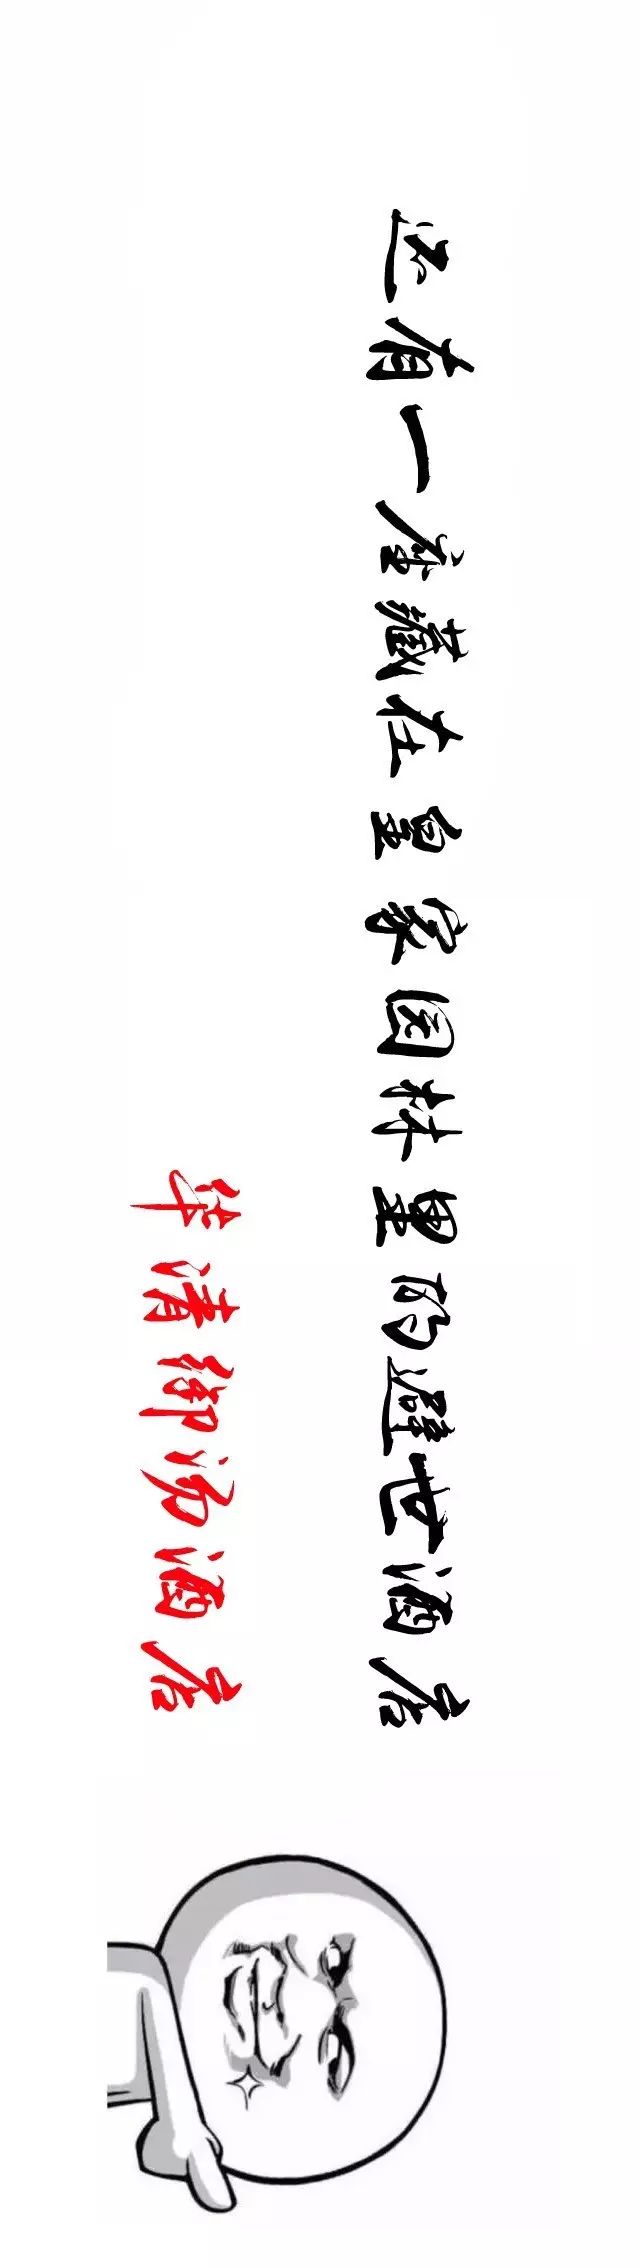 还有一座藏在皇家园林里的避世酒店
华清御汤酒店